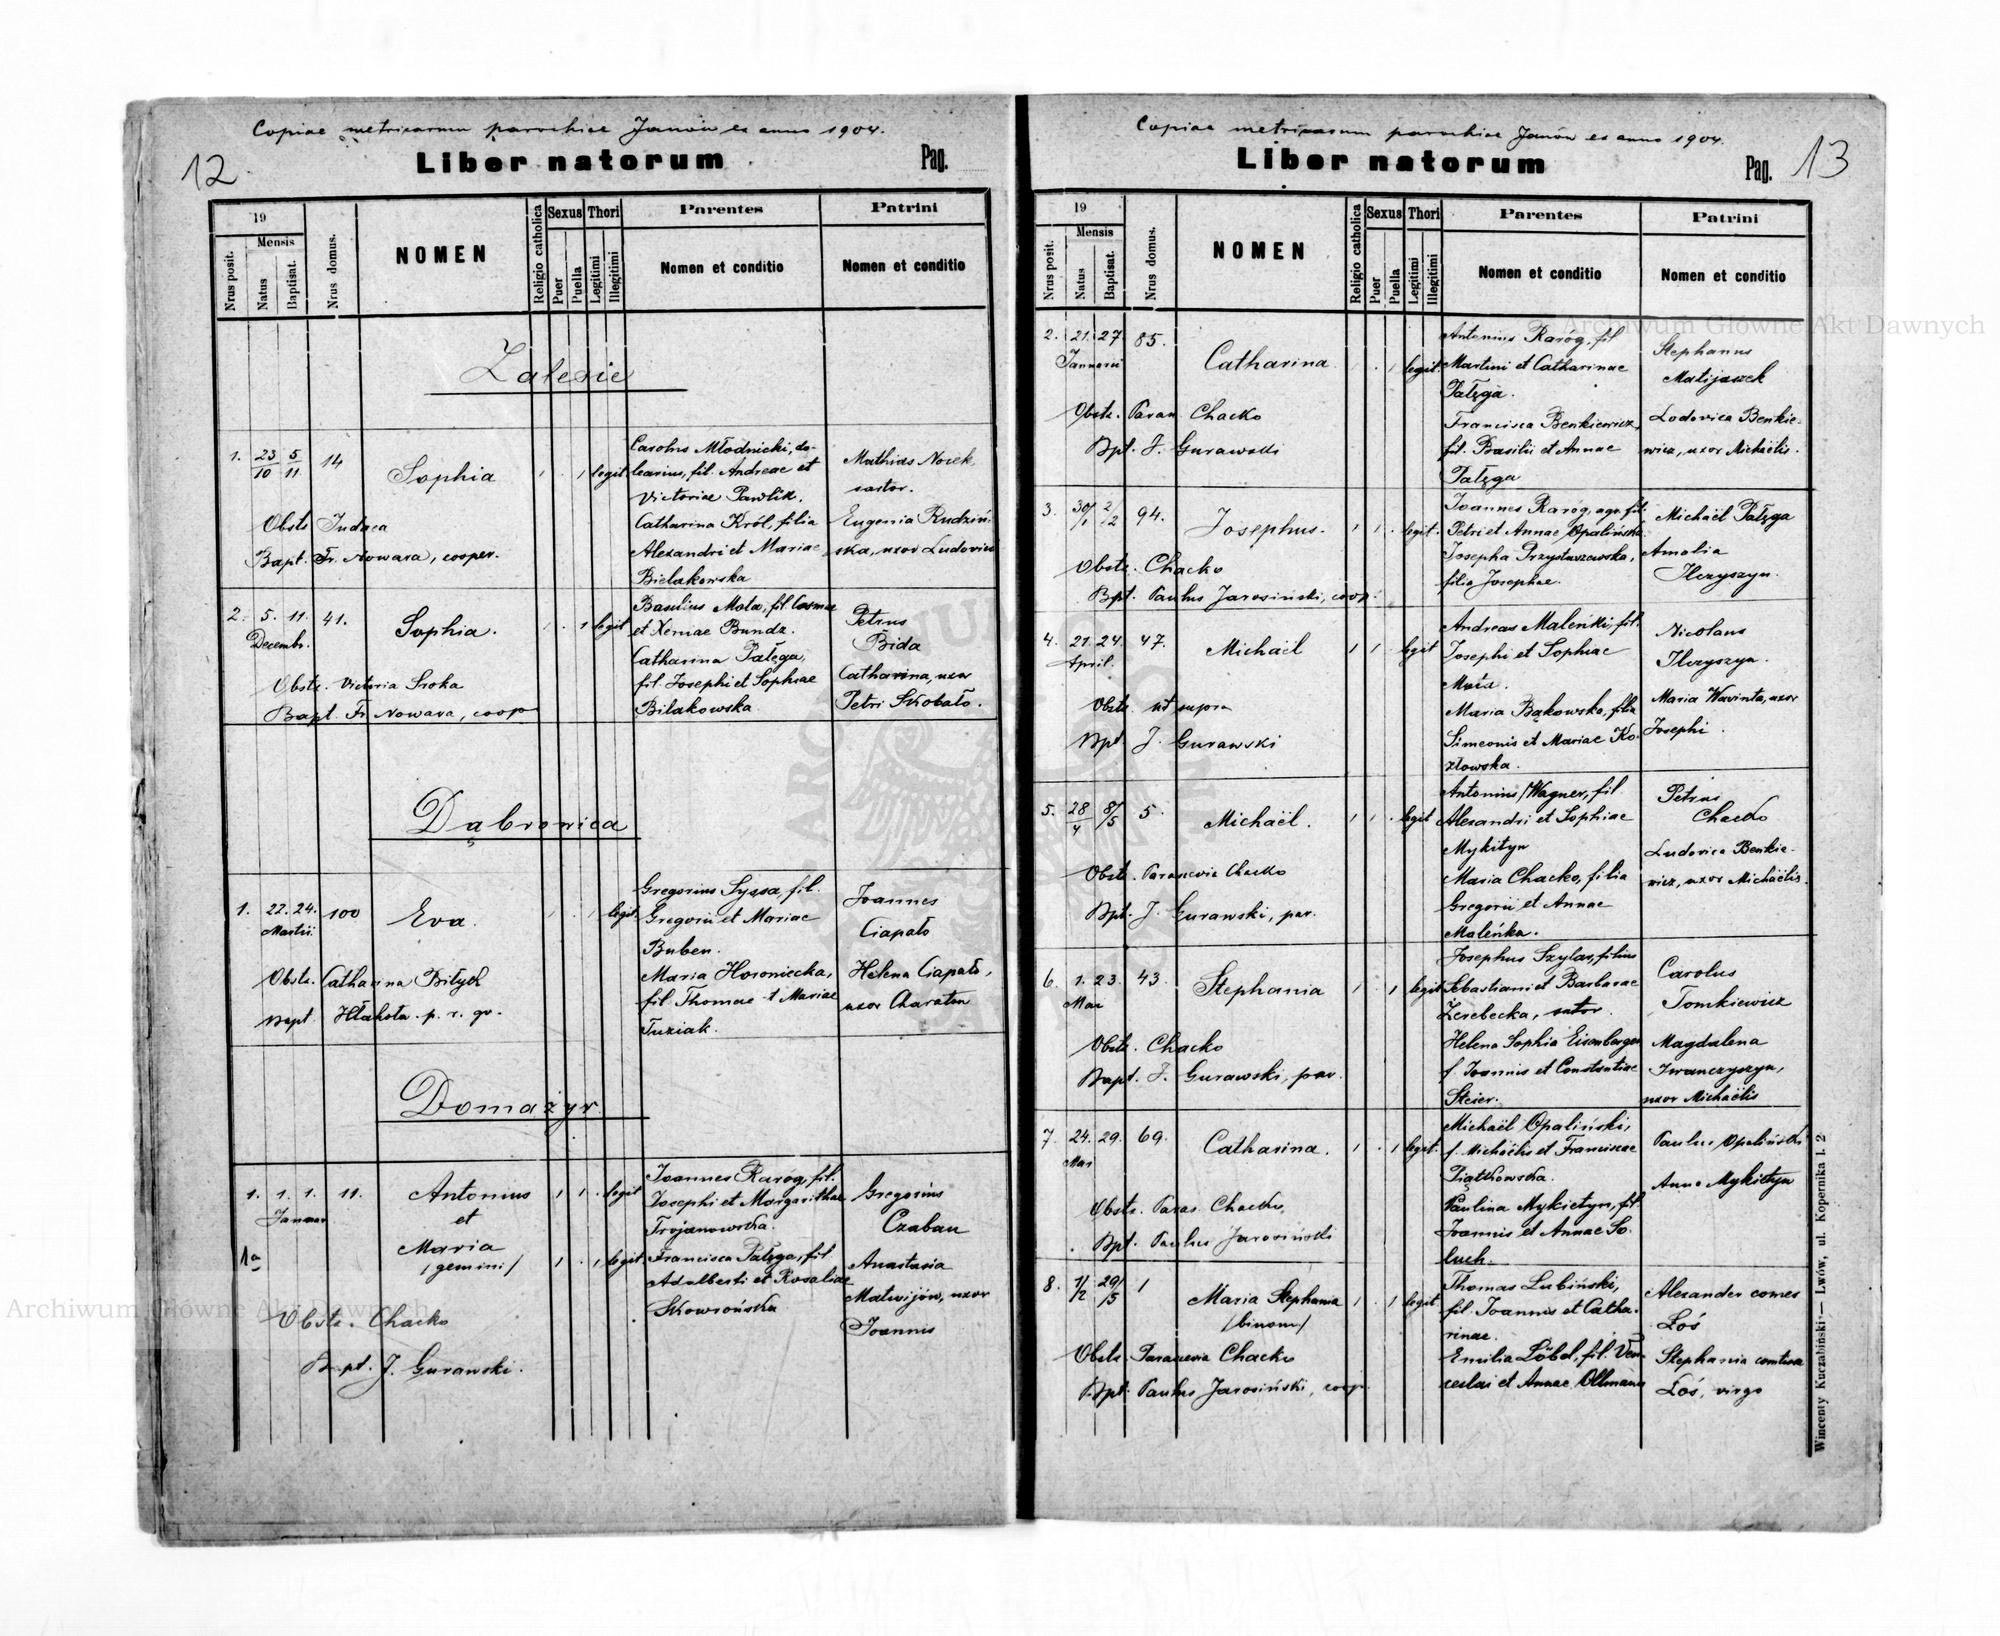 Copiae metricarum parochiae Janów ex anno 1904.
12
Liber natorum
Pag.
19
Mensis
Nrus posit.
Natus
Baptisat.
Nrus domus.
NOMEN
Religio catholica
Sexus
Puer
Puella
Thori
Legitimi
Illegitimi
Parentes
Nomen et conditio
Patrini
Nomen et conditio
Zalesie
1. 23/10 5/11 14
Sophia
1 . 1 legit.
Carolus Młodnicki, do-
learius, fil. Andreae et
Victoriae Pawlik.
Catharina Król, filia
Alexandri et Mariae
Bielakowska
Mathias Nosek
sartor.
Eugenia Rudziń-
ska, uxor Ludovici
Obstr. Judaea
Bapt. Fr. Nowara, cooper.
2. 5. 11. 41.
Decembr.
Sophia.
1 . 1 legit
Basilius Mota, fil. Cosmae
et Xeniae Bundz.
Catharina Pałęga,
fil. Josephi et Sophiae
Bilakowska
Petrus
Bida
Catharina, uxor
Petri Skobało.
Obstr. Victoria Sroka
Bapt. Fr. Nowara, coop
Dąbrowica
1. 22. 24. 100
Martii
Eva.
1 . 1 legit.
Gregorius Syssa, fil.
Gregorii et Mariae
Buben.
Maria Horoniecka,
fil. Thomae et Mariae
Tuziak.
Joannes
Ciapało
Helena Ciapało,
uxor Charaton
Obstr. Catharina Biłyck
Bapt. Hłakota p. r. gr.
Domażyr
1. 1. 1. 11.
Januar
Antonius
et
1a
Maria
/gemini/
1 1 . legit
1 . 1 legit
Joannes Raróg, fil.
Josephi et Margarithae
Trojanowska.
Francisca Pałęga, fil
Adalberti et Rosaliae
Skowrońska
Gregorius
Czaban
Anastasia
Matwijów, uxor
Joannis
Obstr. Chacko
Bapt. J. Gurawski.
Copiae metricarum parochiae Janów ex anno 1904.
Liber natorum
Pag. 13
19
Mensis
Nrus posit.
Natus
Baptisat.
Nrus domus.
NOMEN
Religio catholica
Sexus
Puer
Puella
Thori
Legitimi
Illegitimi
Parentes
Nomen et conditio
Patrini
Nomen et conditio
2. 21. 27. 85.
Januarii
Catharina
. 1 legit.
Antonius Raróg, fil
Martini et Catharinae
Pałęga.
Francisca Benkiewicz,
fil. Basilii et Annae
Pałęga
Stephanus
Matijaszek
Lodovica Benkie-
wicz, uxor Michaëlis.
Obstr. Paran Chacko
Bpt. J. Gurawski
3. 30/1 2/2 94.
Josephus.
1 1 . legit.
Joannes Raróg, agr. fil.
Petri et Annae Opalińska
Josepha Przystaszewska,
filia Josephae.
Michaël Pałęga
Amalia
Ilczyszyn.
Obstr. Chacko
Bpt. Paulus Jarosiński, coop.
4. 21. 24. 47.
April.
Michaël
1 1 . legit
Andreas Maleńki, fil.
Josephi et Sophiae
Mota.
Maria Bąkowska, filia
Simeonis et Mariae Ko-
złowska.
Nicolaus
Ilczyszyn.
Maria Wawinta, uxor
Josephi.
Obstr. ut supra
Bpt. J. Gurawski
5. 28/4 8/5 5.
Michaël.
1 1 . legit
Antonius Wagner, fil.
Alexandri et Sophiae
Mykityn
Maria Chacko, filia
Gregorii et Annae
Maleńka.
Petrus
Chacko
Ludovica Benkie-
wicz, uxor Michaëlis.
Obstr. Parascevia Chacko
Bpt. J. Gurawski, par.
6. 1. 23. 43.
Mai
Stephania
1 . 1 legit
Josephus Szylar, filius
Sebastiani et Barbarae
Zerebecka, sutor.
Helena Sophia Eisenberger
f. Joannis et Constantiae
Steier.
Carolus
Tomkiewicz
Magdalena
Iwanczyszyn,
uxor Michaëlis
Obstr. Chacko
Bapt. J. Gurawski, par.
7. 24. 29. 69.
Mai
Catharina.
1 . 1 legit.
Michaël Opaliński,
f. Michaëlis et Franciscae
Piątkowska.
Paulina Mykietyn, fil.
Joannis et Annae So-
luch.
Paulus Opaliński
Anna Mykietyn
Obstr. Paras. Chacko
Bpt. Paulus Jarosiński
8. 1/2 29/5 1
Maria Stephania
/binom/
1 . 1 legit
Thomas Lubiński,
fil. Joannis et Catha-
rinae.
Emilia Löbel, fil. Ven-
ceslai et Annae Ollmann
Alexander comes
Łoś
Stephania comtissa
Łoś, virgo
Obstr. Parascevia Chacko
Bpt. Paulus Jarosiński, coop.
Wincenty Kuczabiński — Lwów, ul. Kopernika l. 2
Archiwum Główne Akt Dawnych
Archiwum Główne Akt Dawnych